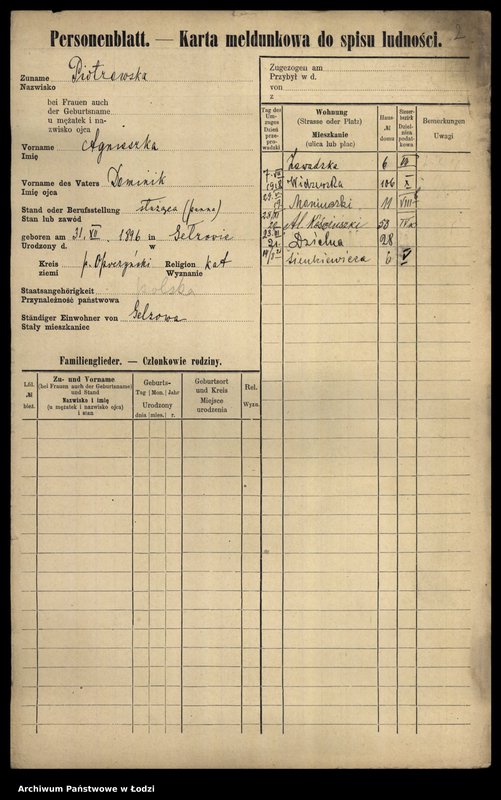 2
Personenblatt. — Karta meldunkowa do spisu ludności.
Zuname Piotrowska
Nazwisko
bei Frauen auch
der Geburtsname
u mężatek i na-
zwisko ojca
Vorname Agnieszka
Imię
Vorname des Vaters Dominik
Imię ojca
Stand oder Berufsstellung służąca (panna)
Stan lub zawód
geboren am 31. VII. 1896 in Gelzowie
Urodzony d. w
Kreis p. Opoczyński Religion kat
ziemi Wyznanie
Staatsangehörigkeit polska
Przynależność państwowa
Ständiger Einwohner von Gelzowa
Stały mieszkaniec
Familienglieder. — Członkowie rodziny.
Lfd. № bież.
Zu- und Vorname
(bei Frauen auch der Geburtsname)
und Stand
Nazwisko i imię
(u mężatek i nazwisko ojca)
i stan
Geburts-
Tag Mon. Jahr
Urodzony
dnia mies. r.
Geburtsort
und Kreis
Miejsce
urodzenia
Rel.
Wyzn.
Zugezogen am
Przybył w d.
von
z
Tag des Um-
zuges
Dzień
prze-
prowadzki
Wohnung
(Strasse oder Platz)
Mieszkanie
(ulica lub plac)
Haus-
№
domu
Steuer-
bezirk
Dziel-
nica
podat-
kowa
Bemerkungen
Uwagi
Zawadzka 6
Widzewska 106 X
Moniuszki 11 VIII
Al. Kościuszki 53
Dzielna 28
Sienkiewicza 6 V
Archiwum Państwowe w Łodzi